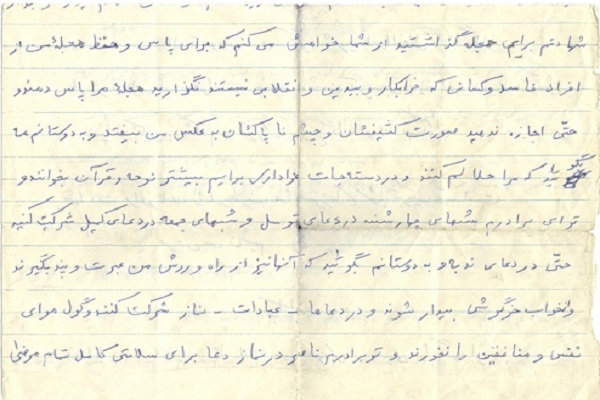 شهادتم برایم حجله گذاشتید از شما خواهش می کنم که برای پاس و حفظ حجله من از
افراد فاسد و کسانی که خرابکار و بی دین و انقلابی نیستند نگذارید حجله مرا پاس دهند و
حتّی اجازه ندهید صورت کثیفشان و چشم ناپاکشان به عکس من بیفتد و به دوستانم
بگوئید که مرا حلالم کنند و در دسته جات عزاداری برایم بیشتر نوحه و قرآن بخوانند و
تو ای برادرم شبهای چهارشنبه در دعای توسل و شبهای جمعه در دعای کمیل شرکت کنید
حتّی در دعای ندبه و به دوستانم بگوئید که آنها نیز از راه و رزش من عبرت و پند بگیرند
و از خواب خرگوشی بیدار شوند و در دعاها - عبادات - نماز شرکت کنند و گول هوای
نفس و منافقین را نخورند و تو برادرم ناصر در نماز دعا برای سلامتی کامل تمام مرضی